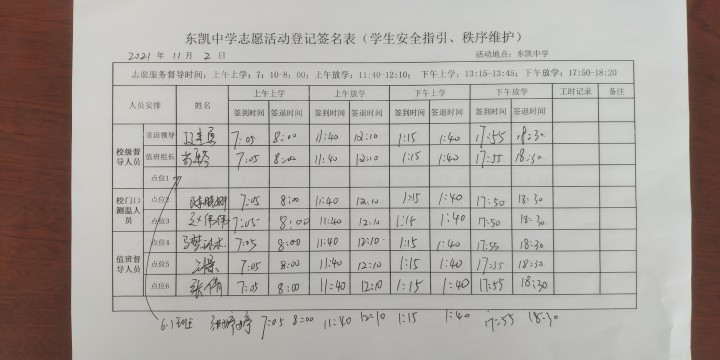 东凯中学志愿活动登记签名表（学生安全指引、秩序维护）
2021 年 11 月 2 日 活动地点：东凯中学
志愿服务督导时间：上午上学：7：10-8：00；上午放学：11:40-12:10；下午上学：13:15-13:45；下午放学：17:50-18:20
人员安排 姓名 上午上学 上午放学 下午上学 下午放学 工时记录 备注
签到时间 签退时间 签到时间 签退时间 签到时间 签退时间 签到时间 签退时间
校级督导人员 带班领导 7:05 8:00 11:40 12:10 1:15 1:40 17:55 18:30
值班组长 7:05 8:00 11:40 12:10 1:15 1:40 17:55 18:30
点位1
校门口测温人员 点位2 7:05 8:00 11:40 12:10 1:15 1:40 17:50 18:30
点位3 赵伟伟 7:05 8:00 11:40 12:10 1:15 1:40 17:50 18:30
值班督导人员 点位4 7:05 8:00 11:40 12:10 1:15 1:40 17:55 18:30
点位5 7:05 8:00 11:40 12:10 1:15 1:40 17:55 18:30
点位6 张倩 7:05 8:00 11:40 12:10 1:15 1:40 17:55 18:30
6.1班 7:05 8:00 11:40 12:10 1:15 1:40 17:55 18:30